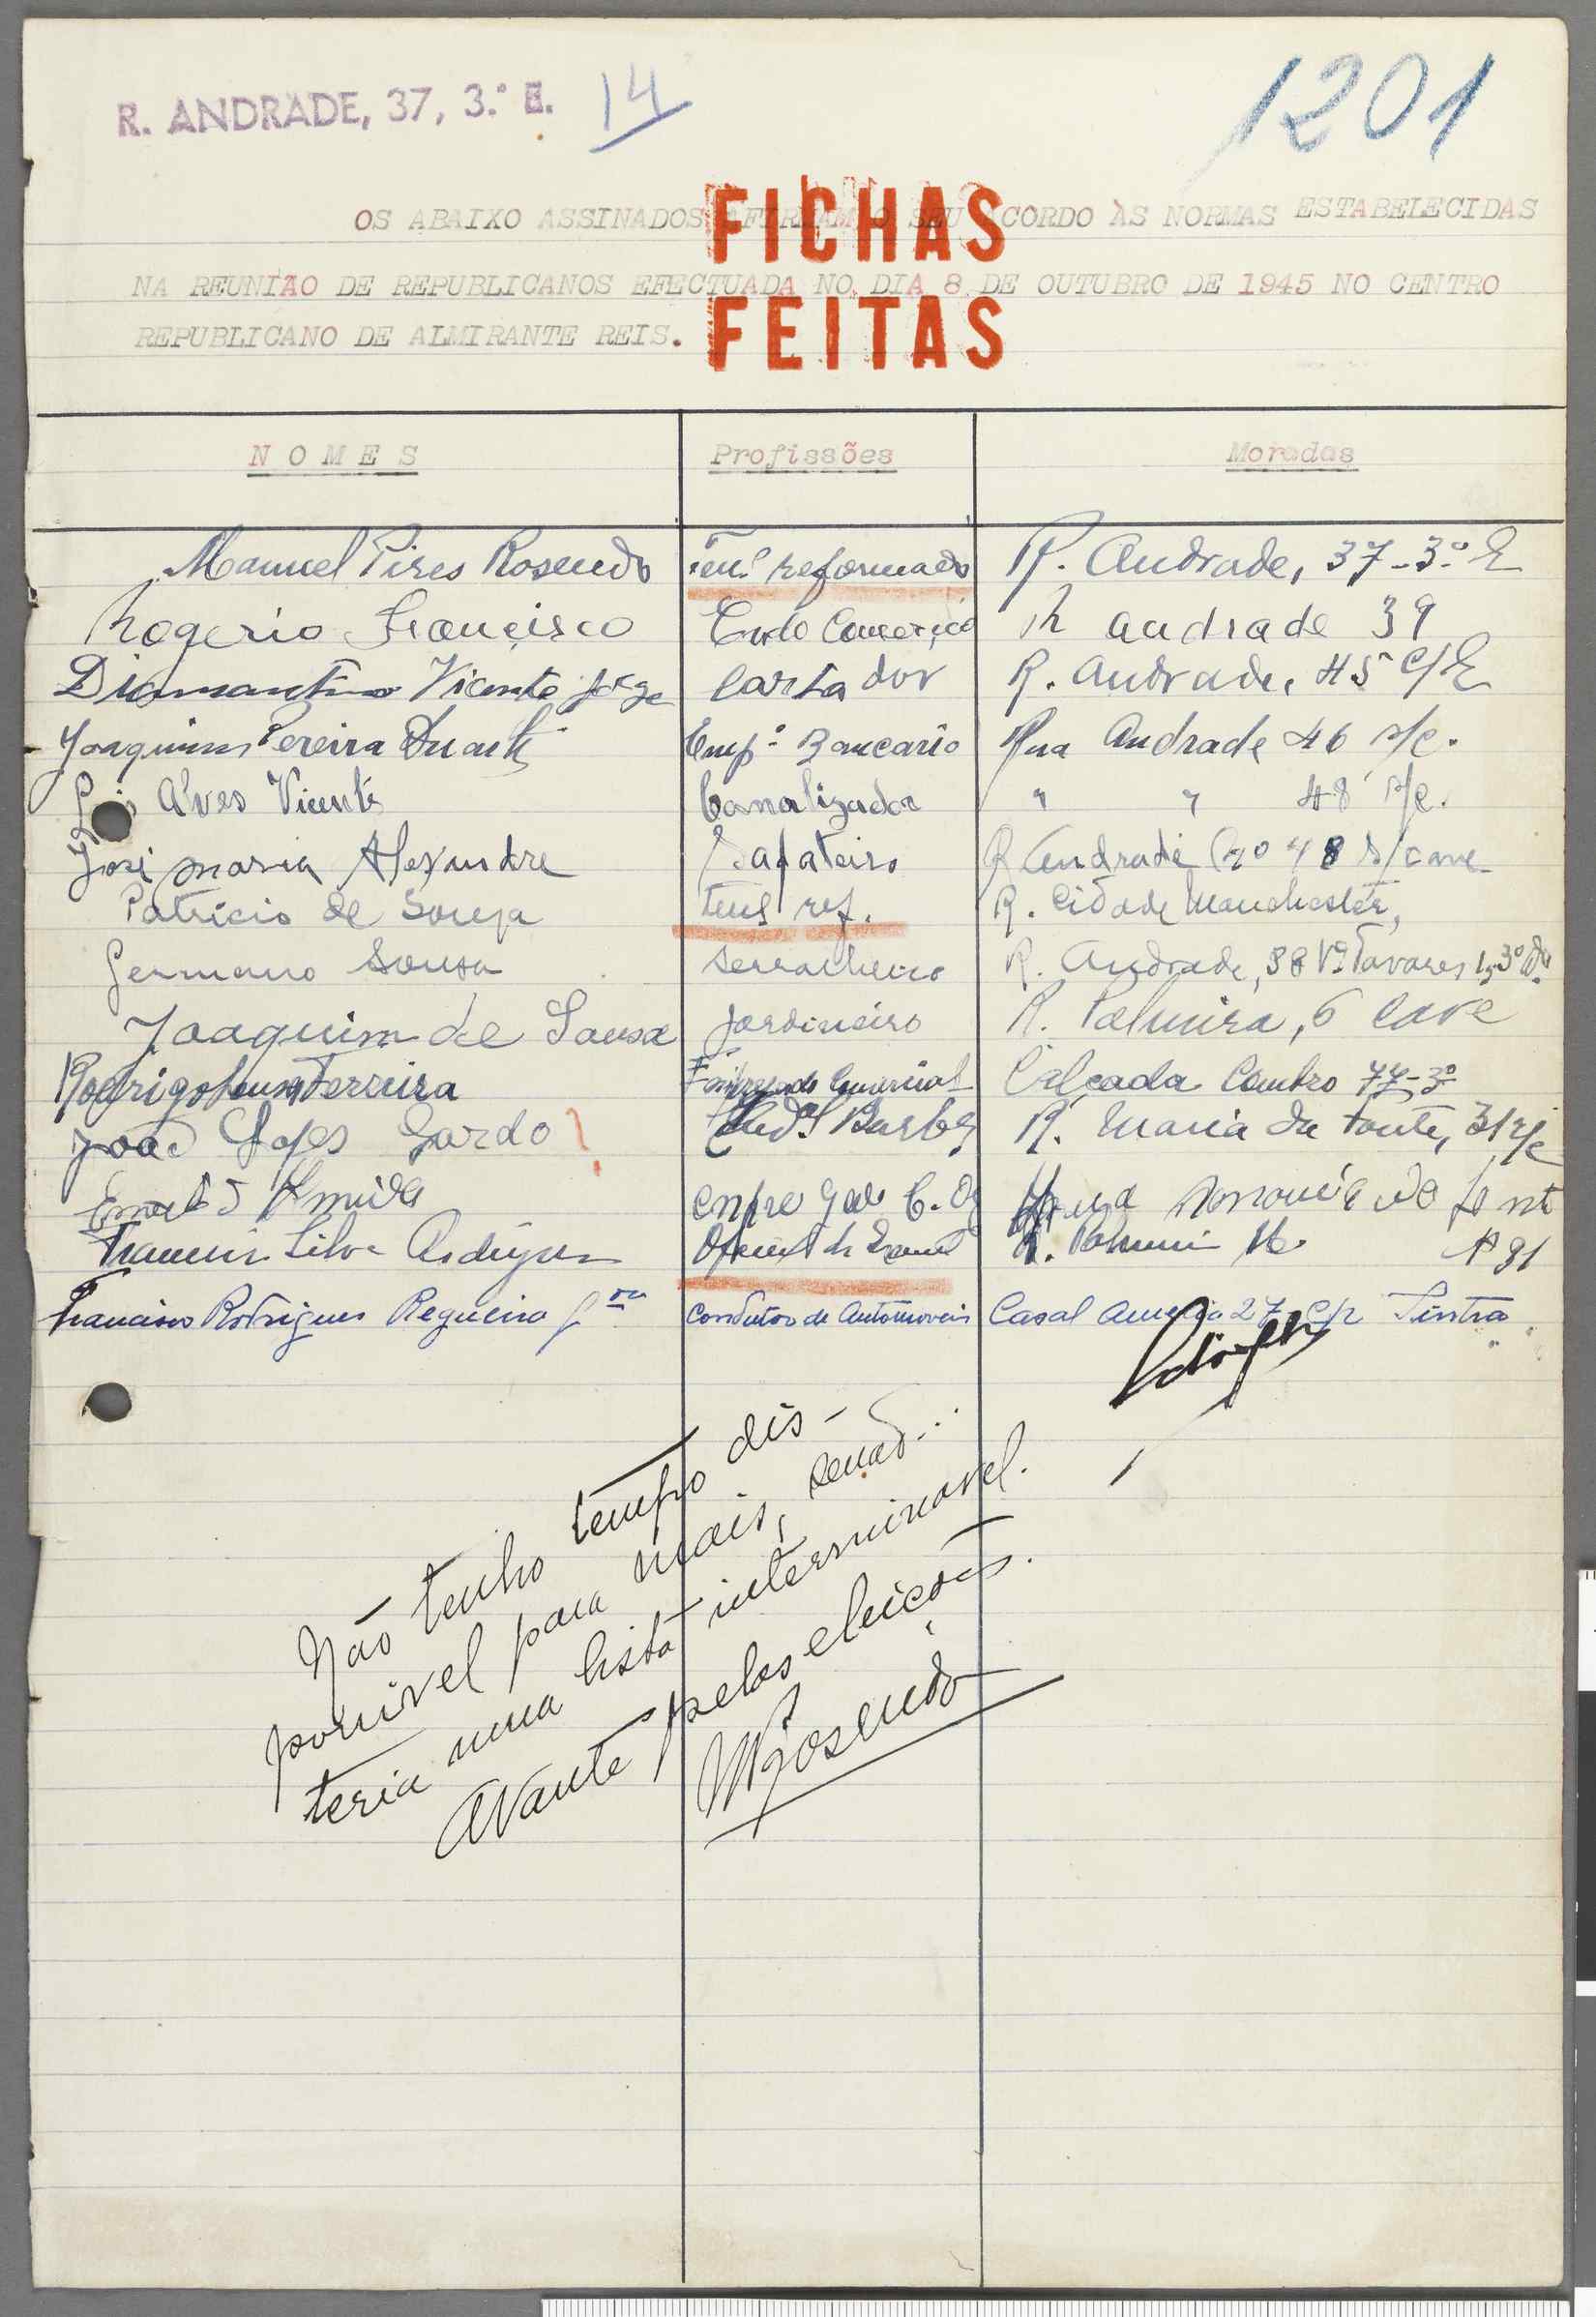 R. ANDRADE, 37, 3.º E. 14
1201
OS ABAIXO ASSINADOS AFIRMAM O SEU ACORDO ÀS NORMAS ESTABELECIDAS
NA REUNIÃO DE REPUBLICANOS EFECTUADA NO DIA 8 DE OUTUBRO DE 1945 NO CENTRO
REPUBLICANO DE ALMIRANTE REIS.
FICHAS
FEITAS
NOMES Profissões Moradas
Manuel Pires Rosendo Ten. reformado R. Andrade, 37-3.º E
Rogerio Francisco Comercio R andrade 39
Diamantino Vicente Jorge Cortador R. Andrade, 45 c/E
Joaquim Pereira Duarte Emp.º Bancario Rua Andrade 46 r/c.
Alves Vicente Canalizador " " 48 r/c.
José maria Alexandre Sapateiro R Andrade nº 48 s/cave
Patricio de Sousa tent ref. R. Cidade Manchester,
Germano Sousa Serralheiro R. Andrade, 38 Vª Tavares 1, 3º D.
Joaquim de Sousa Jardineiro R. Palmira, 6 Cave
Rodrigo Ferreira Empregado Comercial Calçada Combro 77-3º
João Lopes Gardo ? R. Maria da Fonte, 31 r/c
Ernesto Almeida empregado C. O. Rua
Silva Rodrigues Oficial R. Palmira 16. Nº 91
Francisco Rodrigues Regueira Jor Condutor de Automoveis Casal America 27 c/r Sintra
Não tenho tempo dis-
ponivel para mais, senão...
teria uma lista interminavel.
Avante pelas eleições.
MRosendo